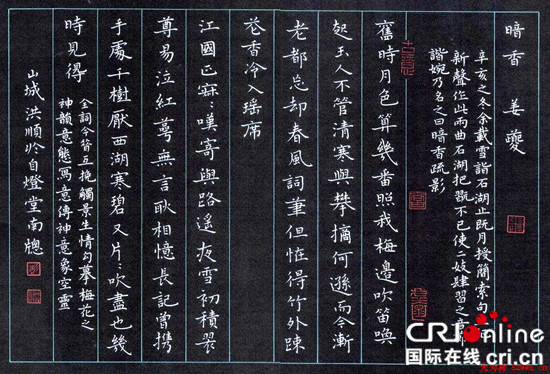 暗香 姜夔
辛亥之冬余載雪詣石湖止既月授簡索句
新聲作此兩曲石湖把翫不已使二妓肄習之音
諧婉乃名之曰暗香疏影
舊時月色算幾番照我梅邊吹笛喚
起玉人不管清寒與攀摘何遜而今漸
老都忘却春風詞筆但怪得竹外疎
花香冷入瑶席
江國正寂〻嘆寄與路遙夜雪初積翠
尊易泣紅萼無言耿相憶長記曾攜
手處千樹壓西湖寒碧又片〻吹盡也幾
時見得
全詞今昔互挽觸景生情句摹梅花之
神韻意態寫意傳神意象空靈
山城洪順於自燈堂南牕
CRI online
国际在线 cri.cn